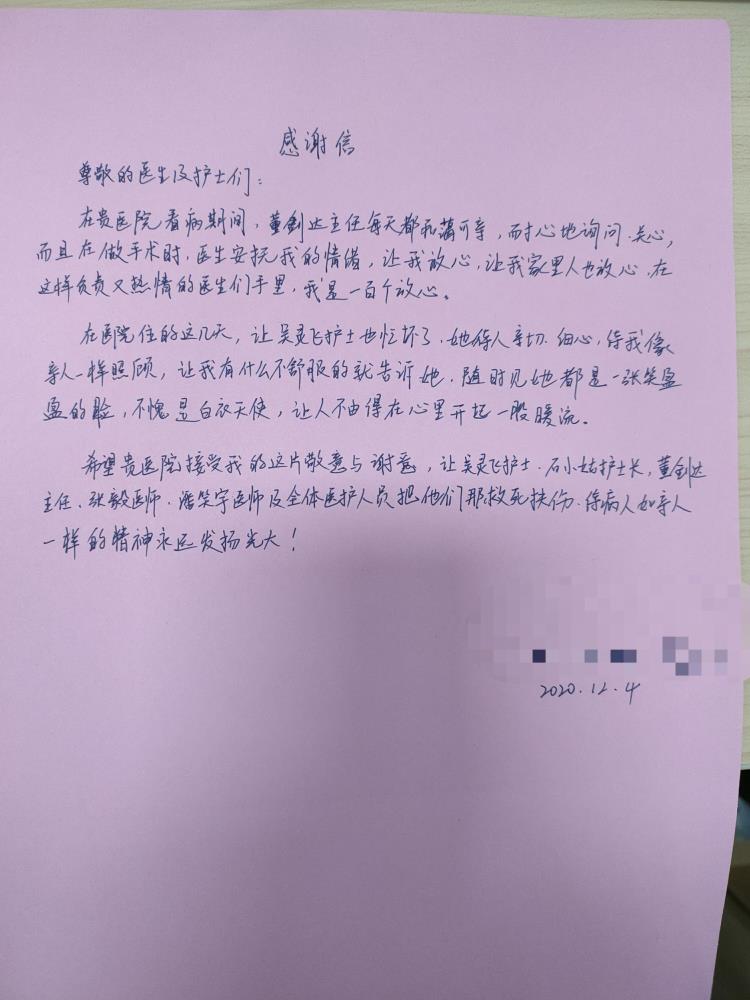 感谢信
尊敬的医生及护士们：
在贵医院看病期间，董剑达主任每天都和蔼可亲，耐心地询问、关心，
而且在做手术时，医生安抚我的情绪，让我放心，让我家里人也放心，在
这样负责又热情的医生们手里，我是一百个放心。
在医院住的这几天，让吴灵飞护士也忙坏了，她待人亲切、细心，待我像
亲人一样照顾，让我有什么不舒服的就告诉她，随时见她都是一张笑盈
盈的脸，不愧是白衣天使，让人不由得在心里开起一股暖流。
希望贵医院接受我的这片敬意与谢意，让吴灵飞护士、石小姑护士长，董剑达
主任、张毅医师、潘笑宇医师及全体医护人员把他们那救死扶伤、待病人如亲人
一样的精神永远发扬光大！
2020.12.4